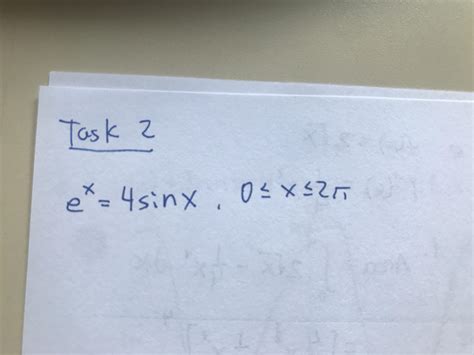 Task 2
e^x = 4sinx, 0 ≤ x ≤ 2π